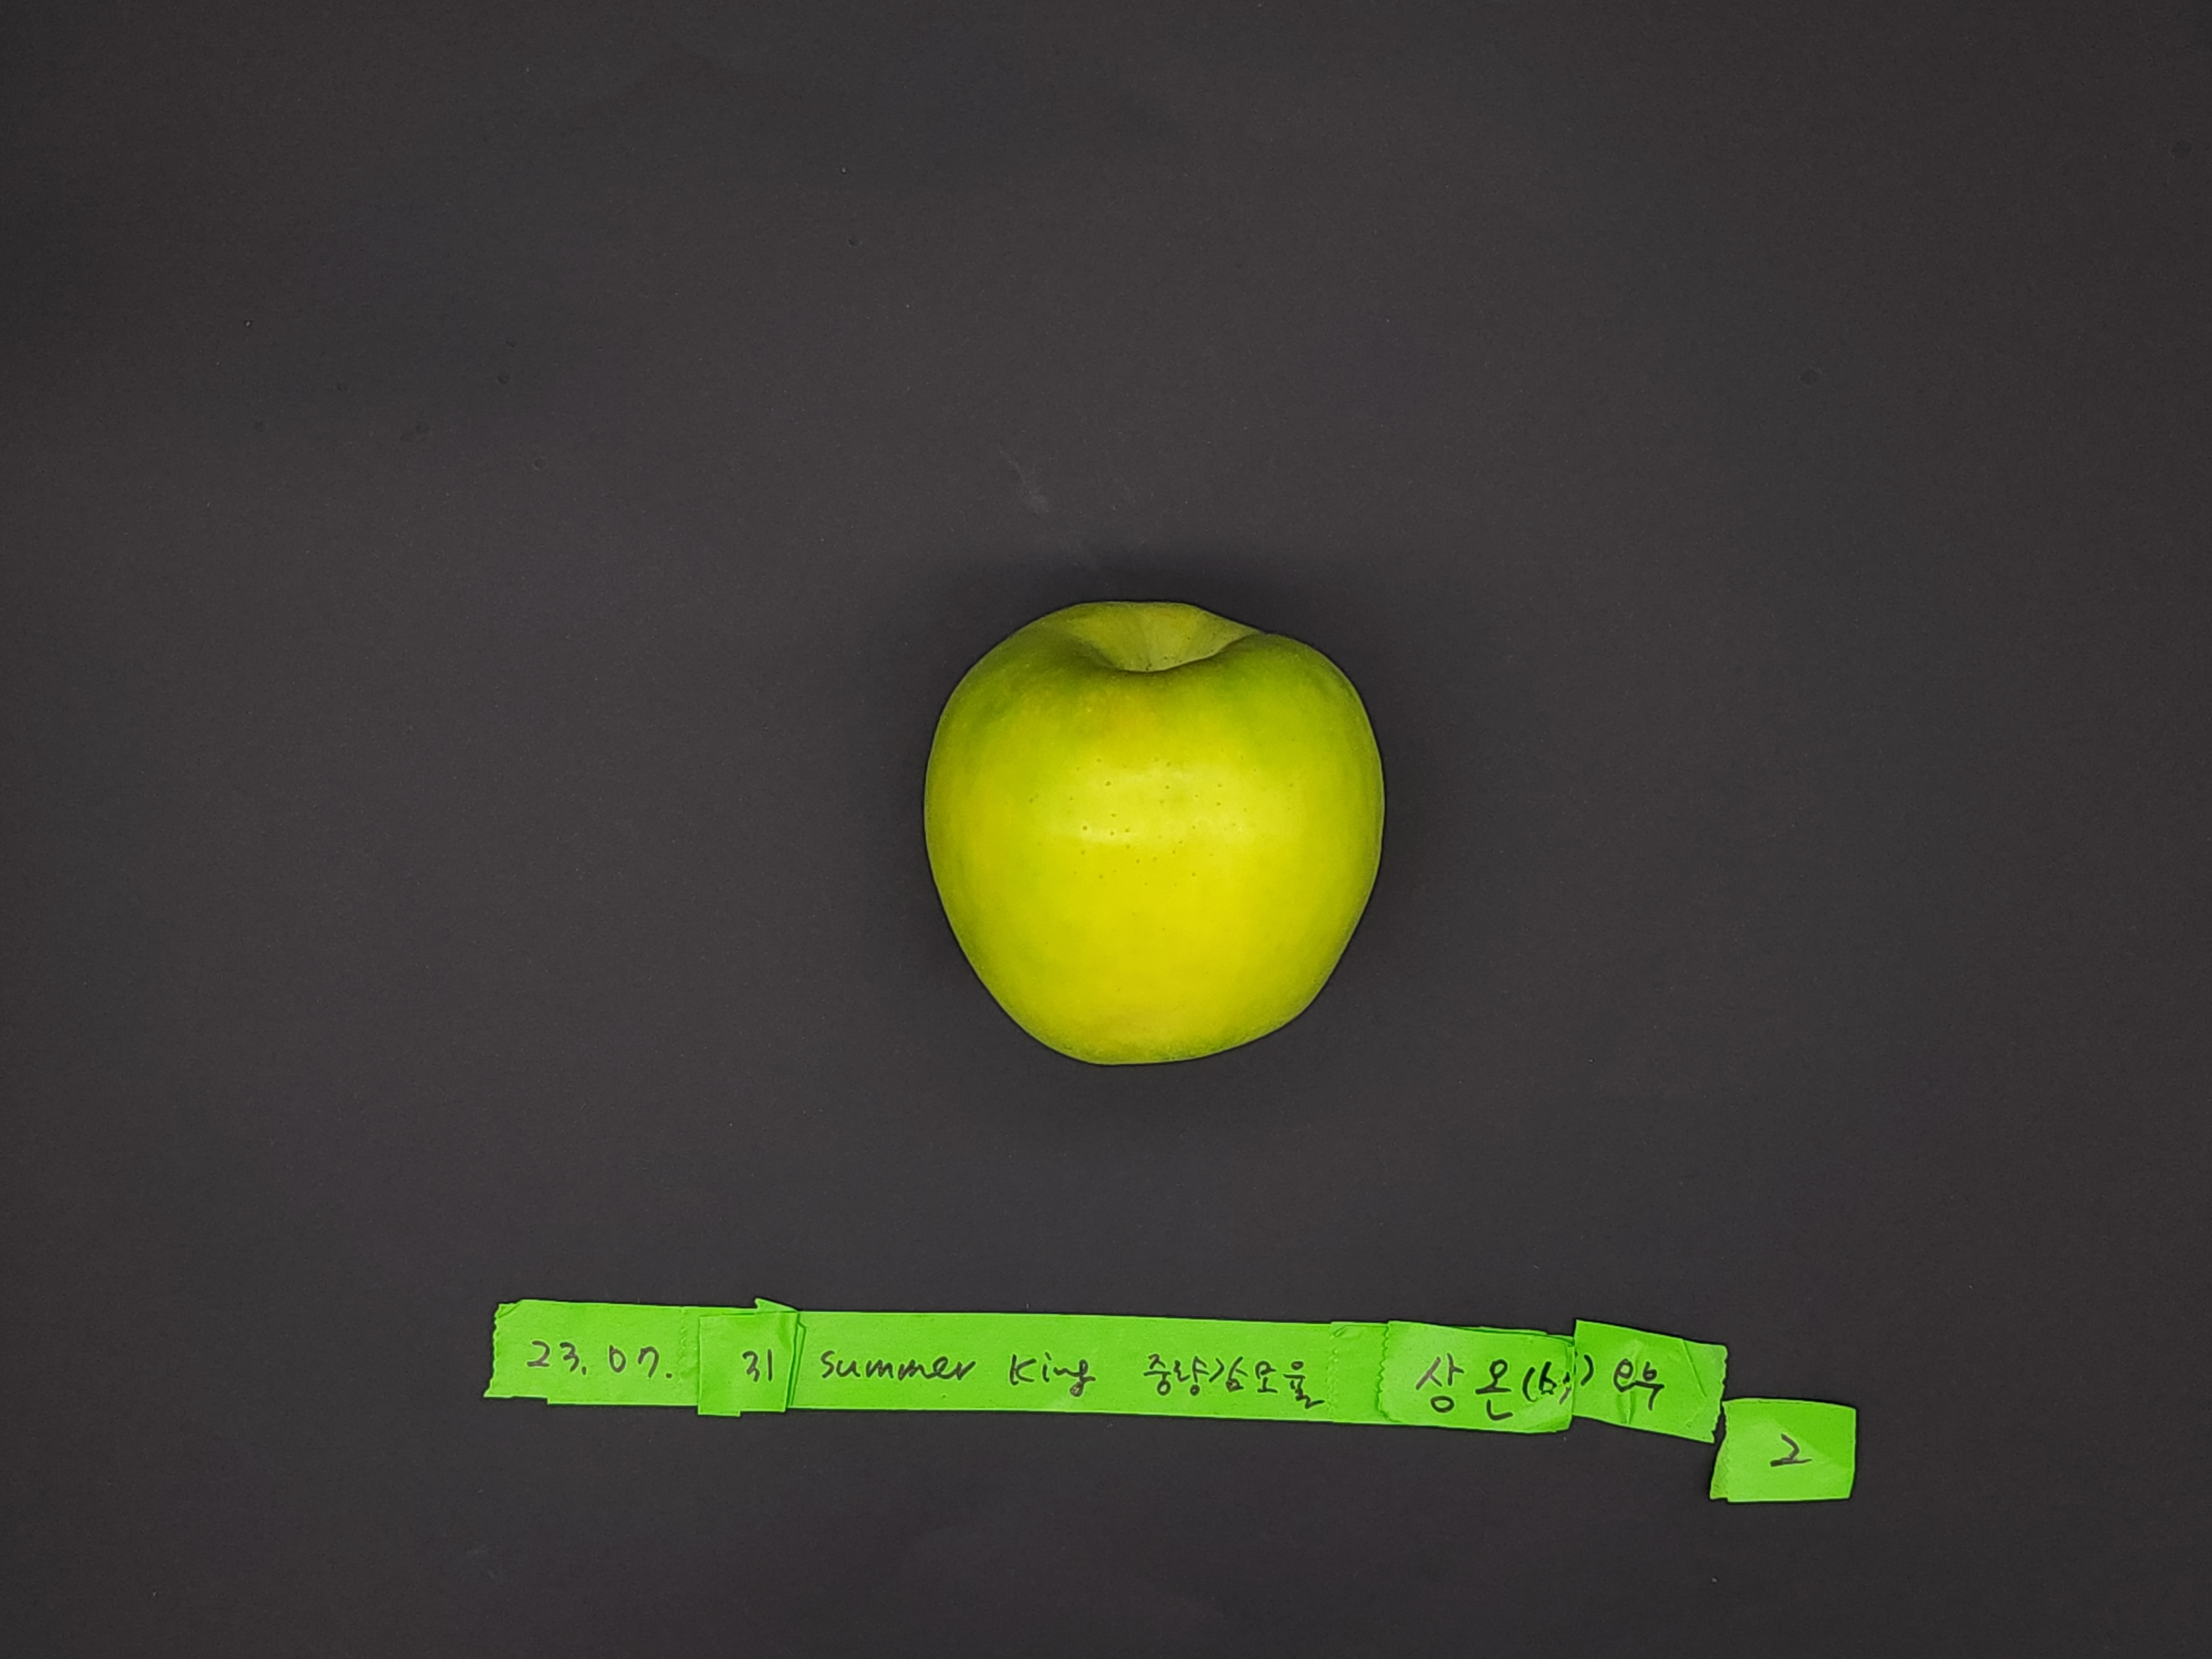 23.07. 31 summer King 중량감모율 상온
2